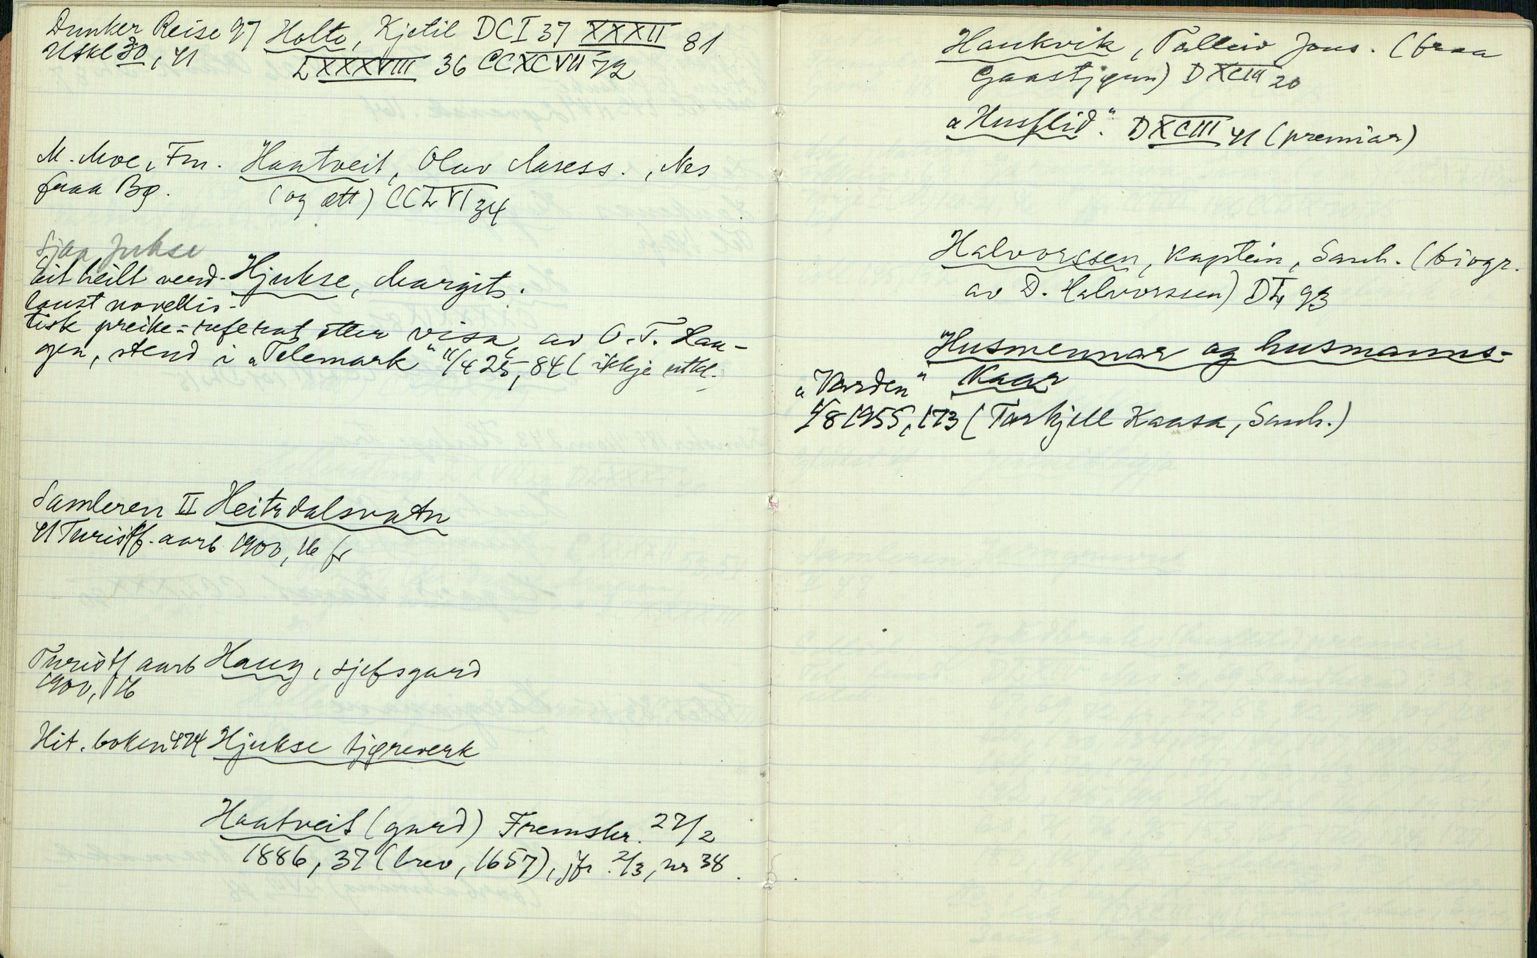 Dunker Reise 97 Holte, Kjetil DCI 37 XXXII 81
Utkl 30, 41 LXXXVIII 36 CCXCVII 72
M. Moe, Fm. Haatveit, Olav Aaress., Nes
fraa Bø. (og ætt) CCLVI 34
Sjaa Jukse
Eit heilt verd- Hjukse, Margit.
laust novellis-
tisk preike=referat etter visa, av O. T. Hau-
gen, stend i "Telemark" 11/4 25, 84 (ikkje utkl.
Samleren II Heitrdalsvatn
41 Turistf. aarb 1900, 16 fr
Turistf aarb Haug, sjefsgard
1900, 16
Hit. boken 474 Hjukse tjøreverk
Haatveit (gard) Fremskr. 27/2
1886, 37 (brev, 1657), jfr. 2/3, nr 38.
Haukvik, Talleiv Jons. (fraa
Gaastjønn) DXCIII 20
"Husflid". DXCIII 41 (premiar)
Halvorssen, kaptein, Sauh. (biogr.
av D. Halvorssen) DL 93
Husmennar og husmanns-
"Varden" kaar
4/8 1955, 173 (Torkjell Kaasa, Sauh.)